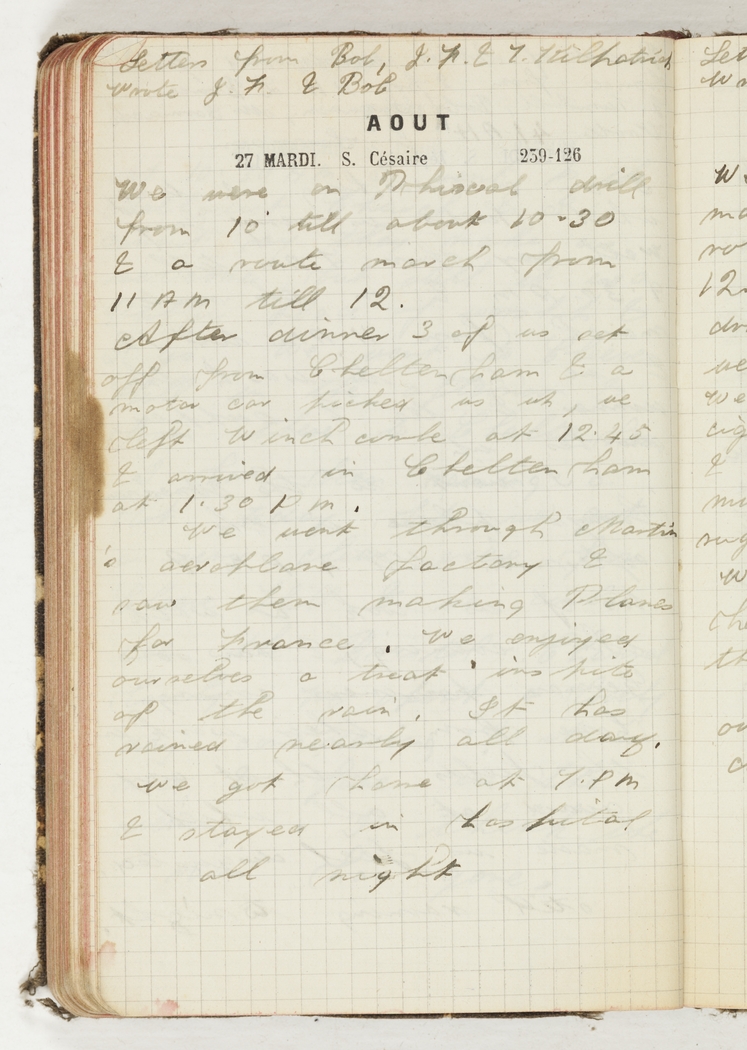 Letters from Bob, J. F. & T. Kilpatrick
Wrote J. F. & Bob
AOUT
27 MARDI. S. Césaire 239-126
We were on Phiscal drill
from 10 till about 10-30
& a route march from
11 AM till 12.
After dinner 3 of us set
off from Cheltenham & a
motor car picked us up, we
left Winchcombe at 12.45
& arrived in Cheltenham
at 1.30 P m.
We went through Martin
's aeroplane factory &
saw them making Planes
for France. We enjoyed
ourselves a treat inspite
of the rain. It has
rained nearly all day.
We got home at 7.PM
& stayed in hospital
all night